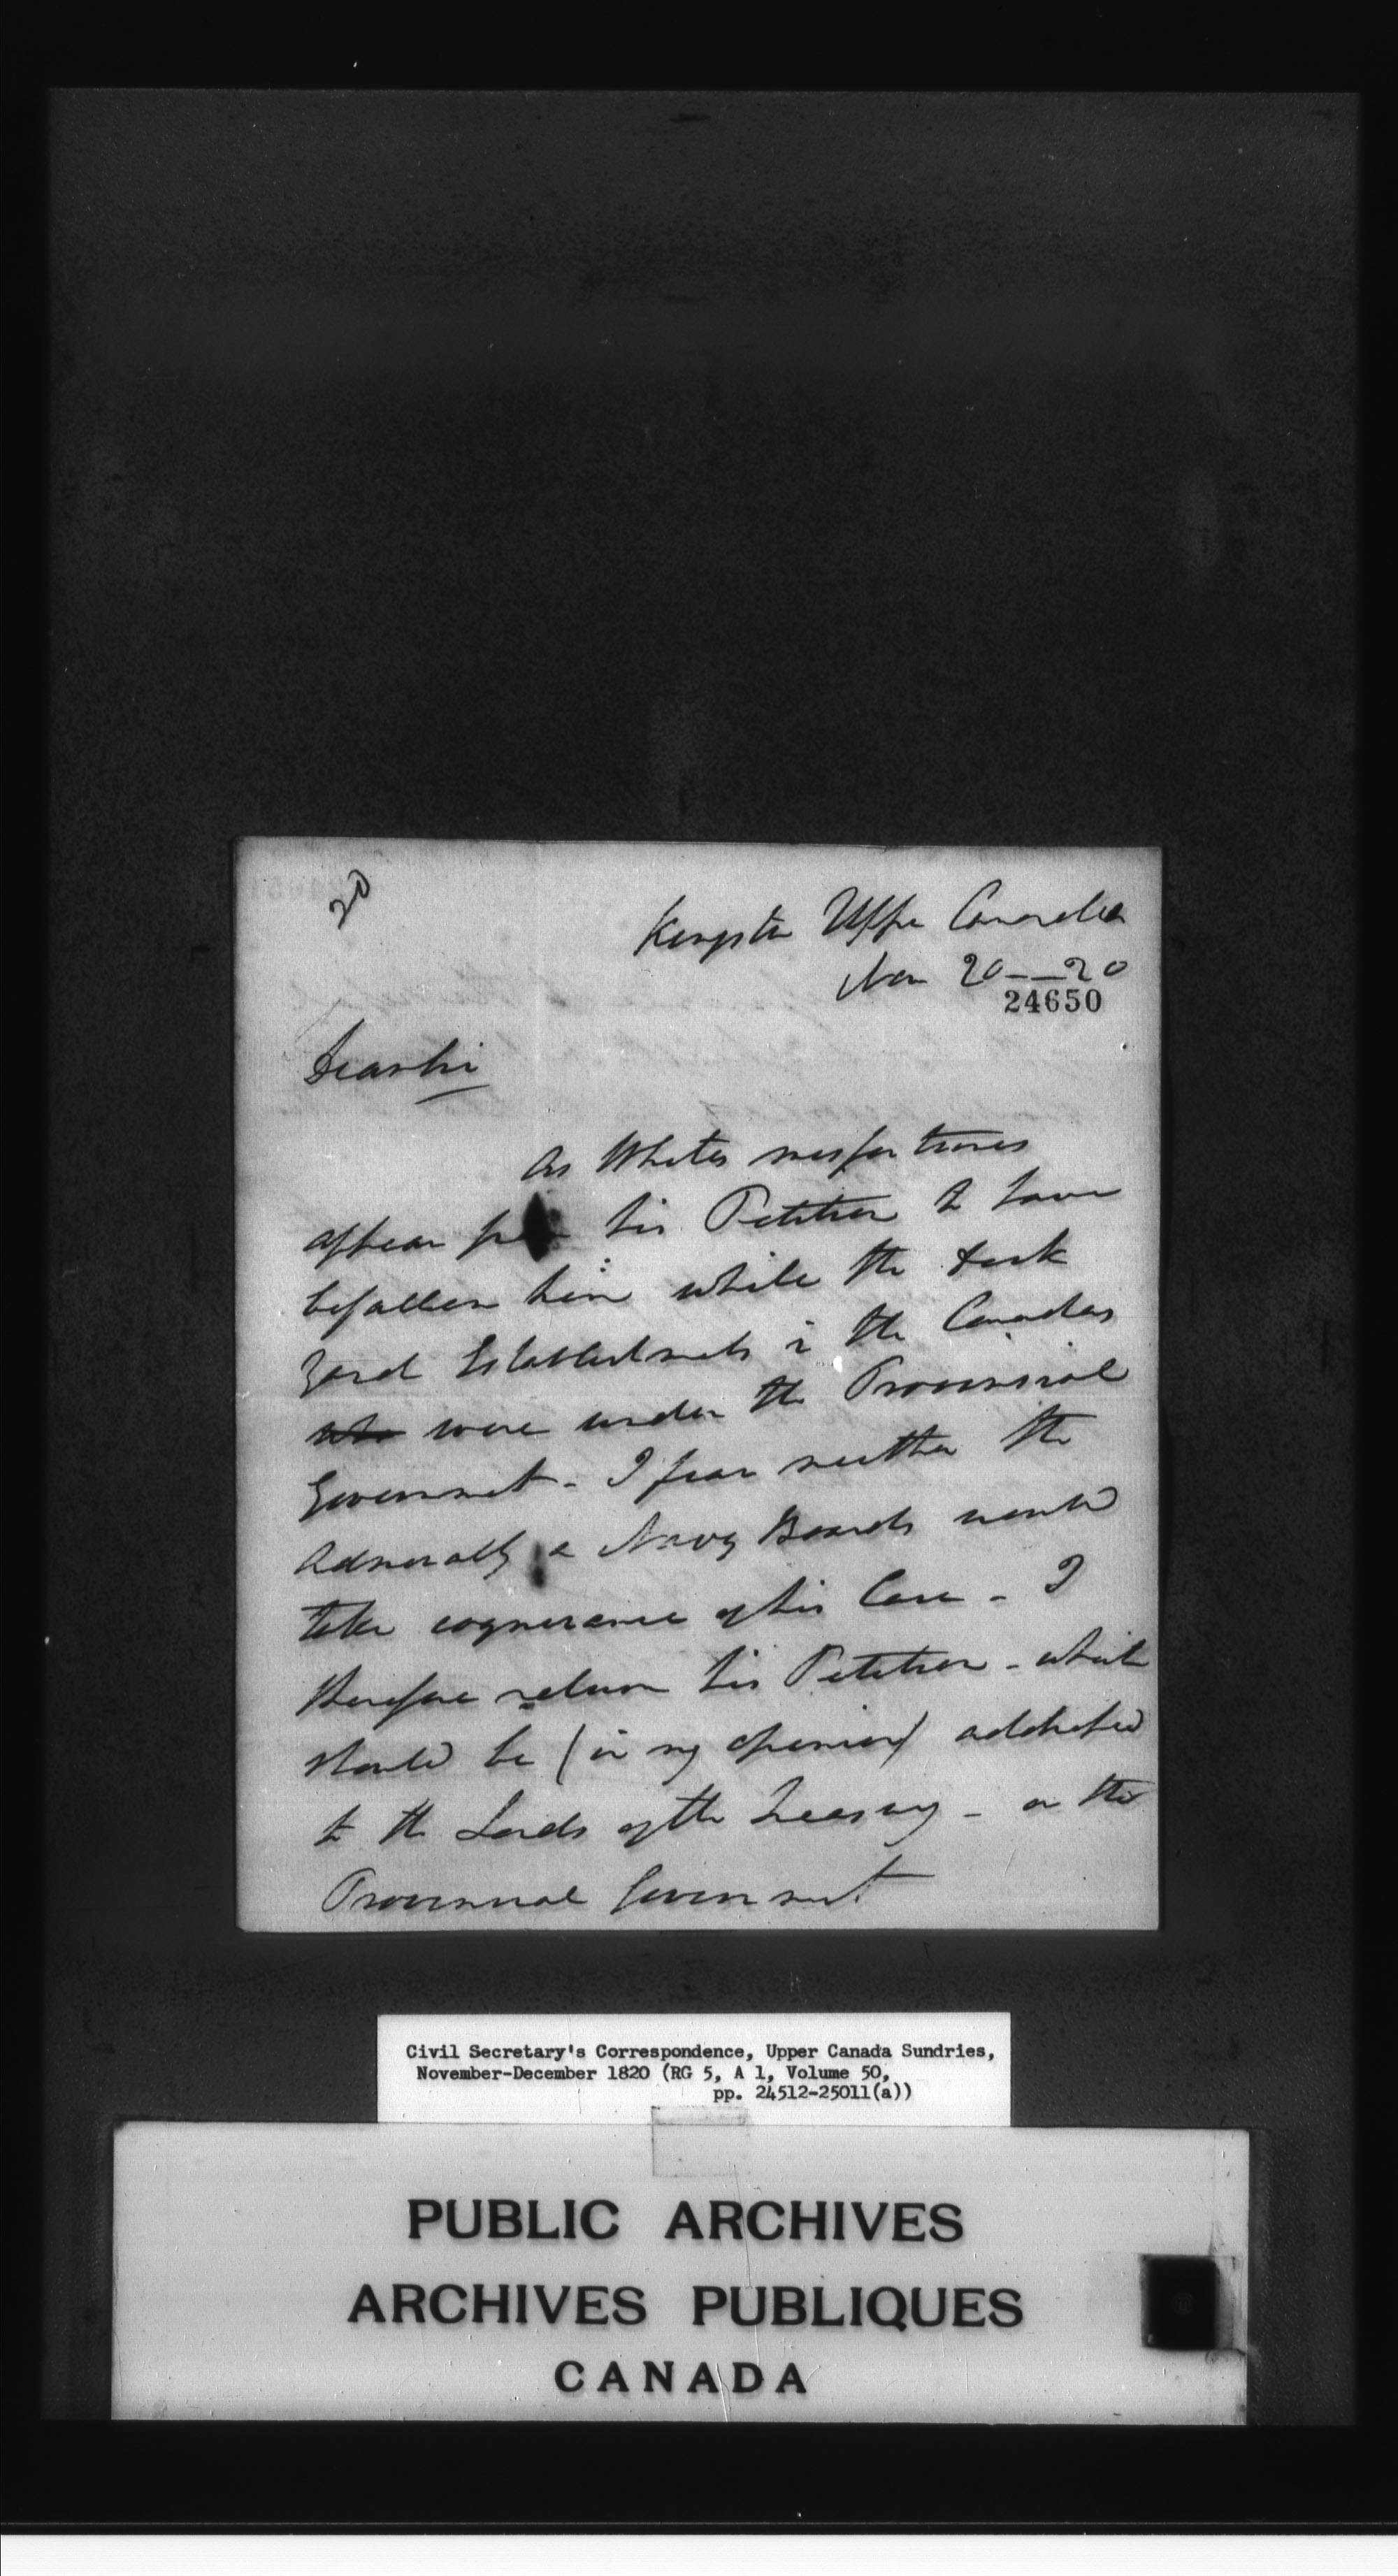 20
Kingston Upper Canada
Nov 20 — 20
24650
Dear Sir
As Whites misfortunes
appear from his Petition to have
befallen him while the Dock
Yard Establishments in the Canadas
who were under the Provincial
Government - I fear neither the
Admiralty or Navy Boards would
take cognizance of his Case - I
therefore return his Petition - which
should be (in my opinion) addressed
to the Lords of the Treasury - or the
Provincial Government
Civil Secretary's Correspondence, Upper Canada Sundries,
November-December 1820 (RG 5, A 1, Volume 50,
pp. 24512-25011(a))
PUBLIC ARCHIVES
ARCHIVES PUBLIQUES
CANADA